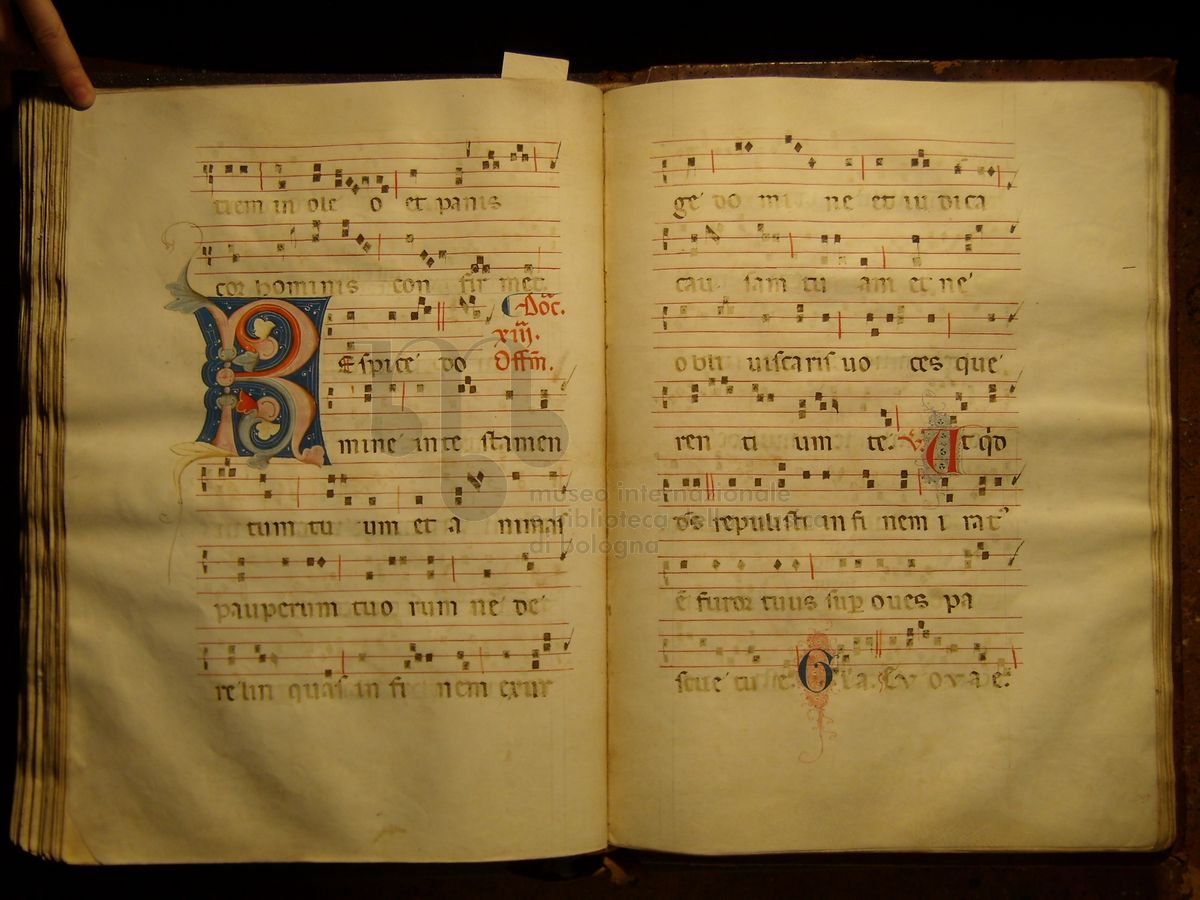 ciem in ole o et panis
cor hominis con fir met.
Dõc.
xiij.
REspice do Offm̃.
mine in te stamen
tum tu um et a nimas
pauperum tuo rum ne de
relin quas in fi nem exur
ge do mi ne et iu dica
cau sam tu am et ne
obli uiscaris uo ces que
ren ti um te. V. Ut qd
ds repulisti in fi nem i rat⁹
ẽ furor tuus sup oues pa
scue tu e. Gła. Ev o v a e.
museo internazionale
e biblioteca della musica
di bologna